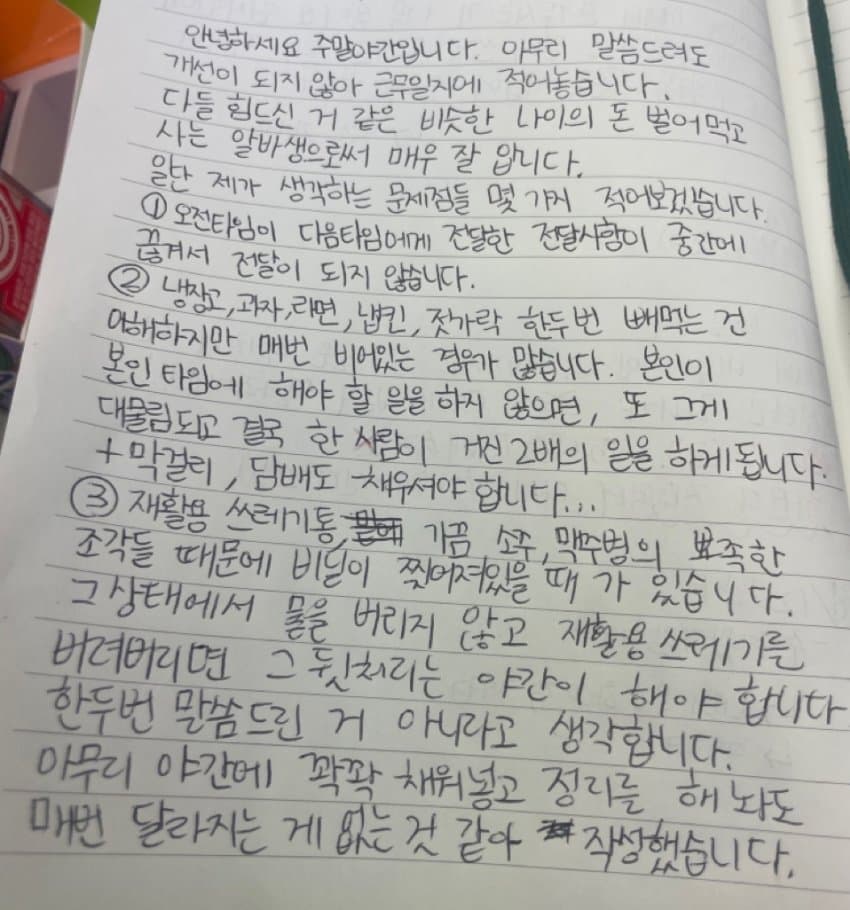 안녕하세요 주말야간입니다. 아무리 말씀드려도
개선이 되지 않아 근무일지에 적어놓습니다.
다들 힘드신 거 같은 비슷한 나이의 돈 벌어먹고
사는 알바생으로써 매우 잘 압니다.
일단 제가 생각하는 문제점들 몇 가지 적어보겠습니다.
① 오전타임이 다음타임에게 전달한 전달사항이 중간에
끊겨서 전달이 되지 않습니다.
② 냉장고, 과자, 라면, 냅킨, 젓가락 한두번 빼먹는 건
이해하지만 매번 비어있는 경우가 많습니다. 본인이
본인 타임에 해야 할 일을 하지 않으면, 또 그게
대물림되고 결국 한 사람이 거진 2배의 일을 하게 됩니다.
+ 막걸리, 담배도 채우셔야 합니다...
③ 재활용 쓰레기통, 가끔 소주, 맥주병의 뾰족한
조각들 때문에 비닐이 찢어져있을 때가 있습니다.
그 상태에서 물을 버리지 않고 재활용 쓰레기를
버려버리면 그 뒷처리는 야간이 해야 합니다
한두번 말씀드린 거 아니라고 생각합니다.
아무리 야간에 꽉꽉 채워넣고 정리를 해 놔도
매번 달라지는 게 없는 것 같아 작성했습니다.